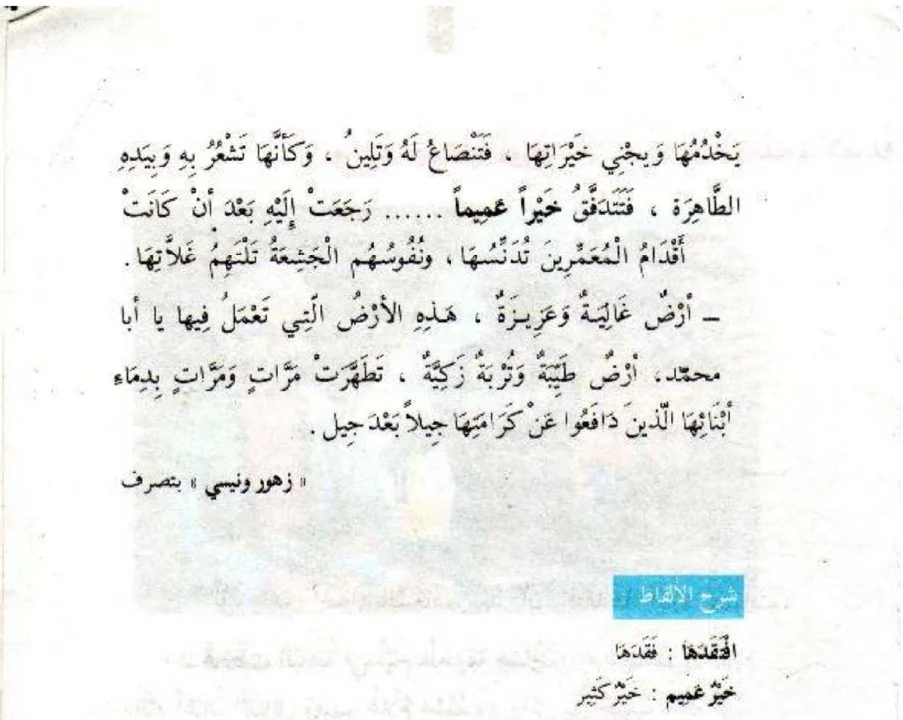 يَخْدُمُهَا وَيجْنِي خَيْرَاتِهَا ، فَتَنْصَاعُ لَهُ وَتَلِينُ ، وَكَأَنَّهَا تَشْعُرُ بِهِ وَبِيَدِهِ
الطَّاهِرَة ، فَتَتَدفَّقُ خَيْراً عَمِيماً ...... رَجَعَتْ إِلَيْهِ بَعْدَ أنْ كَانَتْ
أَقْدَامُ الْمُعَمِّرِينَ تُدَنِّسُهَا ، ونُفُوسُهُم الْجَشِعَةُ تَلْتَهِمُ غَلاَّتِهَا .
– أرْضٌ غَالِيَةٌ وَعَزِيزَةٌ ، هَذِهِ الأرْضُ الَّتِي تَعْمَلُ فِيها يا أبا
محمّد، أرْضٌ طَيِّبَةٌ وَتُرْبَةٌ زَكِيَّةٌ ، تَطَهَّرَتْ مَرَّاتٍ وَمَرَّاتٍ بِدِمَاءِ
أبْنَائِهَا الّذينَ دَافَعُوا عَنْ كَرَامَتِهَا جِيلاً بَعْدَ جِيل .
« زهور ونيسي » بتصرف
شرح الألفاظ
افْتَقَدَهَا : فَقَدَهَا
خَيْرٌ عَمِيم : خَيْرٌ كَثِير